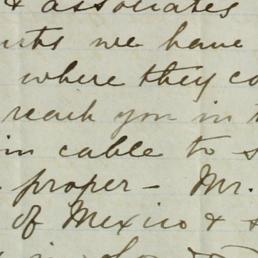 & associates
we have
where they
reach you in
in cable to
proper - Mr.
of Mexico &